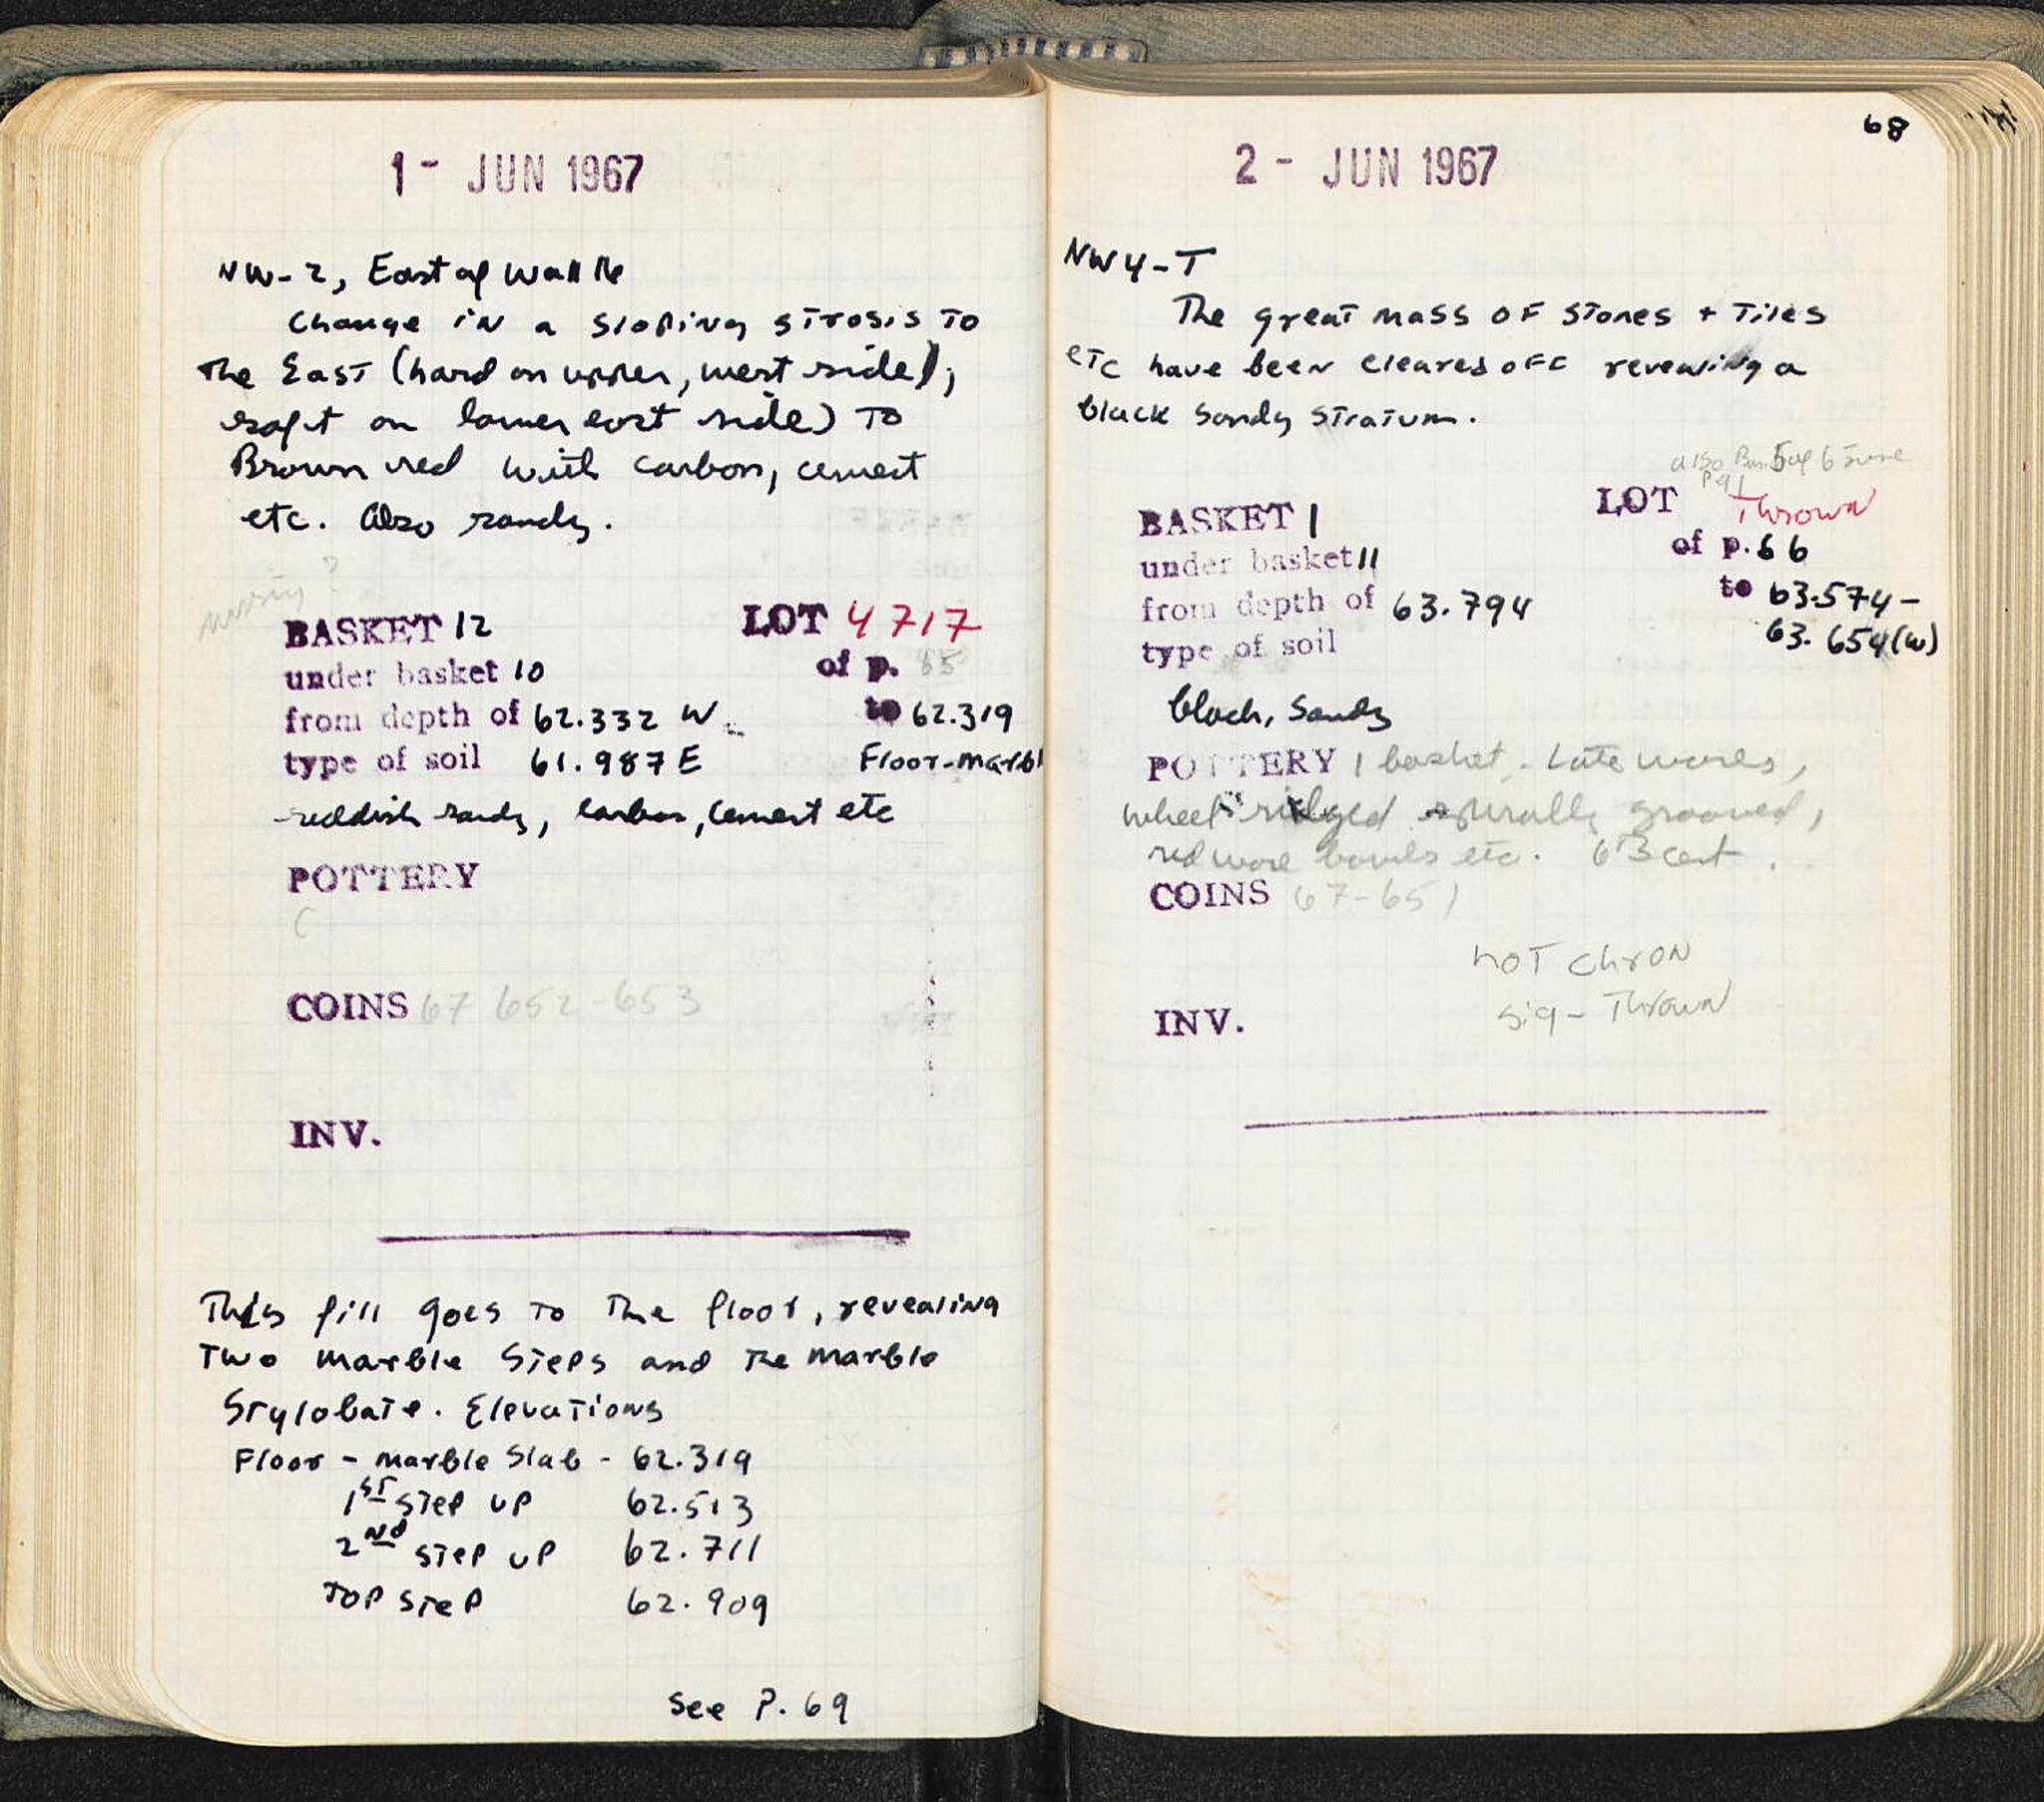 1 - JUN 1967
NW-2, East of Wall 16
Change in a sloping strosis to
the East (hard on upper, west side),
soft on lower east side) to
Brown red with carbon, cement
etc. Also sandy.
missing?
BASKET 12 LOT 4717
under basket 10 of p. 65
from depth of 62.332 W to 62.319
type of soil 61.987 E Floor-Marbl
reddish sandy, carbon, cement etc
POTTERY
COINS 67 652-653
INV.
This fill goes to the floor, revealing
Two marble steps and the marble
Stylobate. Elevations
Floor - marble slab - 62.319
1st step up 62.513
2nd step up 62.711
Top step 62.909
See P. 69
68
2 - JUN 1967
NW4-T
The great mass of stones + tiles
etc have been cleared off revealing a
black sandy stratum.
also 6 June
LOT Thrown
BASKET 1 of p. 66
under basket 11 to 63.574-
from depth of 63.794 63.654(W)
type of soil
black, sandy
POTTERY 1 basket - Late wares,
wheel ridged spirally grooved,
red ware bowls etc. 6 B cent.
COINS 67-651
not chron
sig - Thrown
INV.